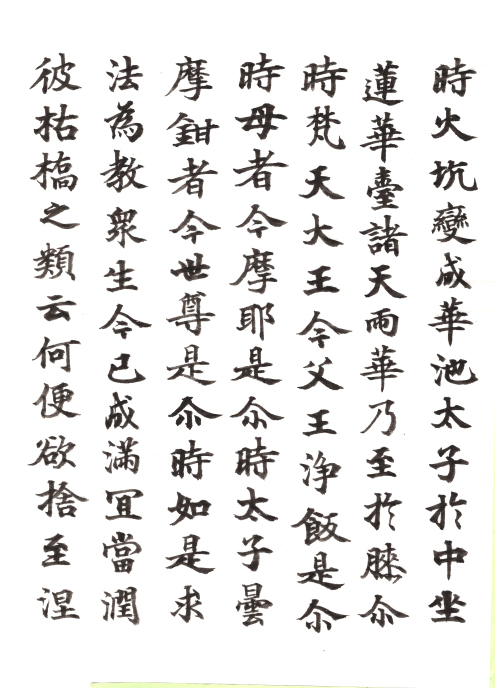 時火坑變成華池太子於中坐
蓮華臺諸天雨華乃至於膝尒
時梵天大王今父王浄飯是尒
時母者今摩耶是尒時太子曇
摩鉗者今世尊是尒時如是求
法為教衆生今已成滿冝當潤
彼枯槁之類云何便欲捨至涅